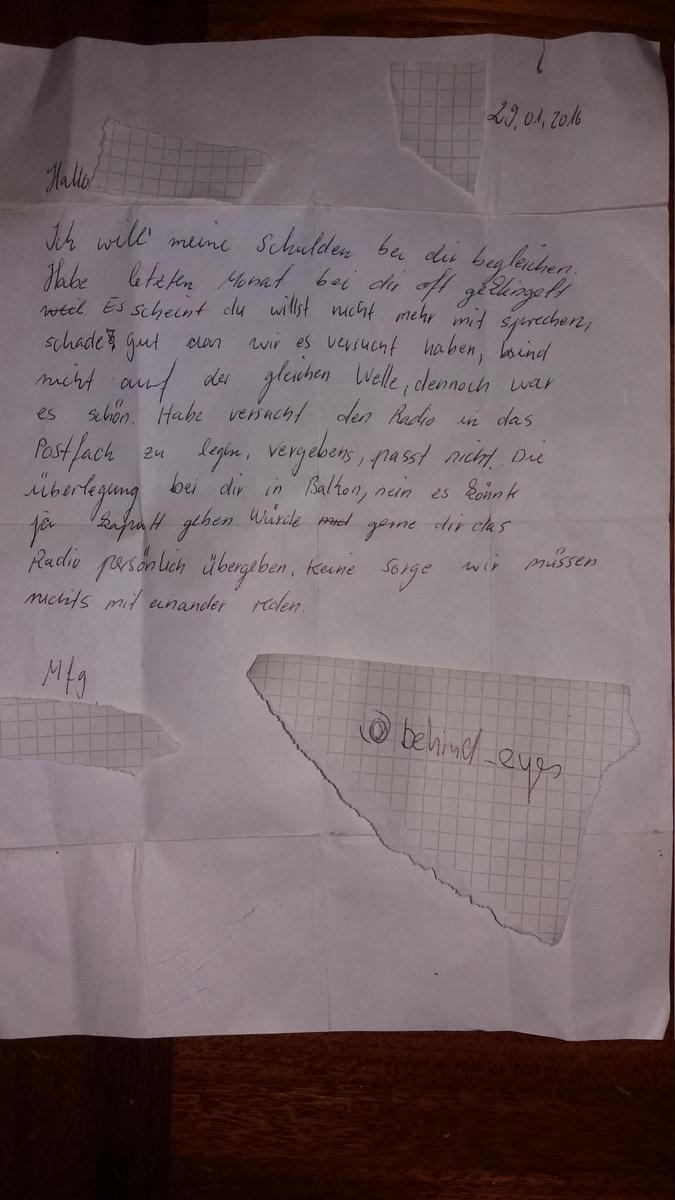 29.01.2016
Hallo
Ich will meine Schulden bei dir begleichen.
Habe letzten Monat bei dir oft geklingelt
weil. Es scheint du willst nicht mehr mit sprechen,
schade gut dan wir es versucht haben, sind
nicht auf der gleichen Welle, dennoch war
es schön. Habe versucht den Radio in das
Postfach zu legen, vergebens, passt nicht. Die
Überlegung bei dir in Balkon, nein es könnte
ja kaputt gehen. Würde gerne dir das
Radio persönlich übergeben. Keine Sorge wir müssen
nichts mit einander reden.
Mfg
@behind_eyes